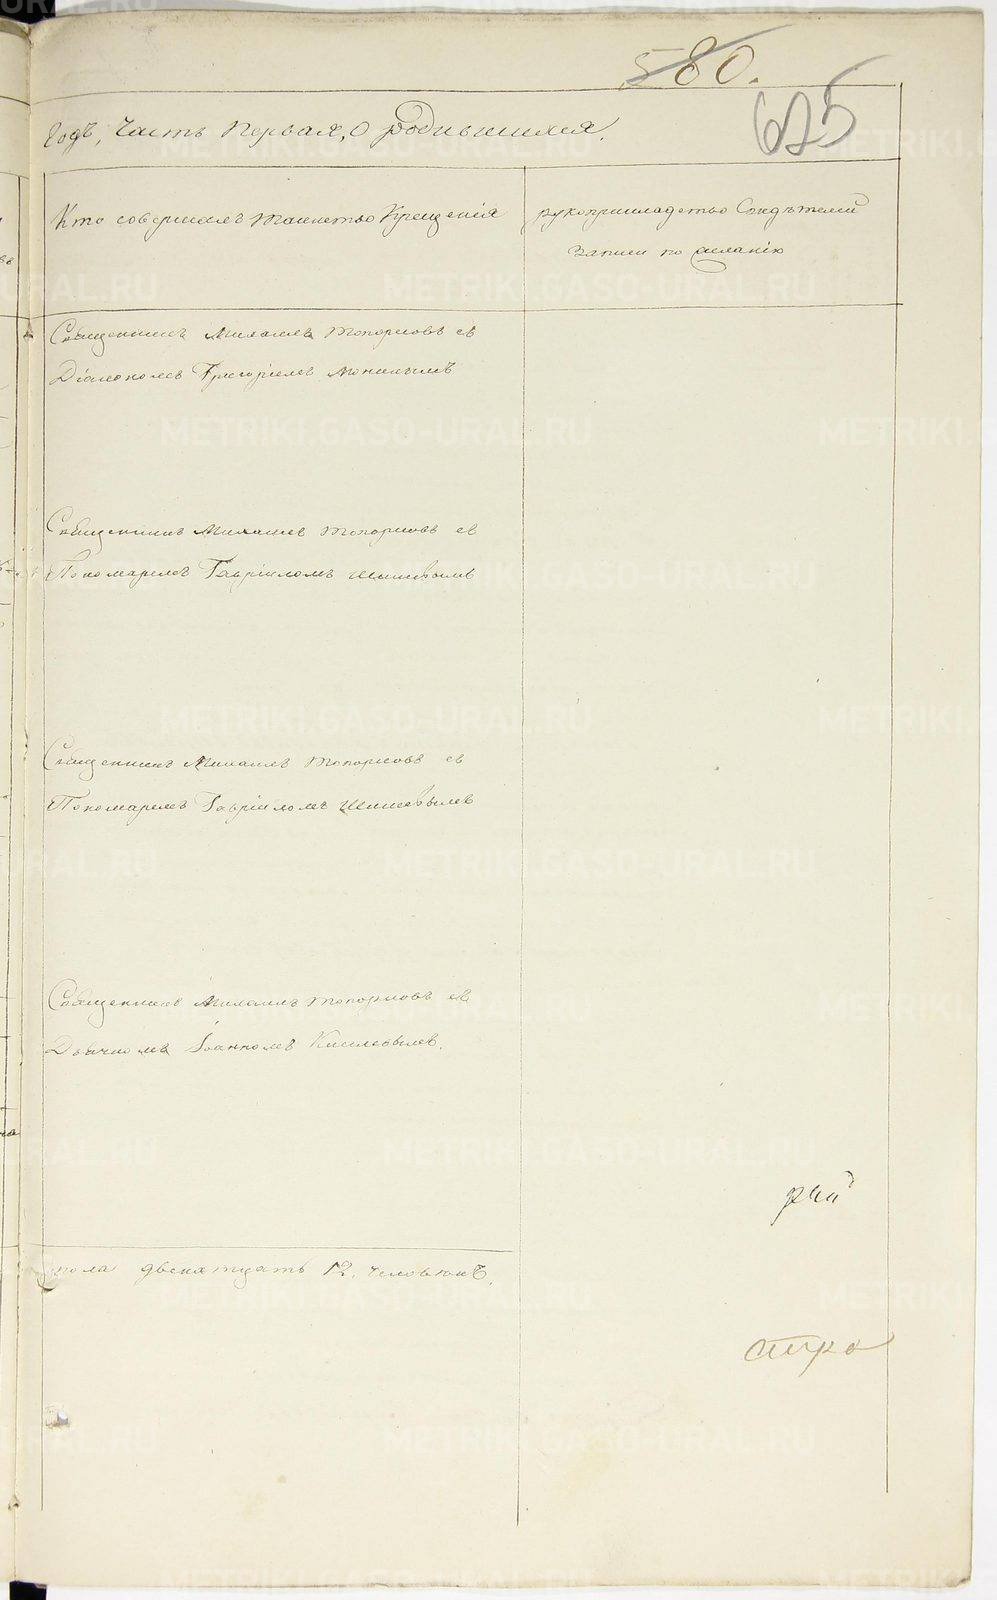 580.
625
Годъ, Часть Первая, О родившихся.
Кто совершалъ таинство Крещенія
рукоприкладство Свидѣтелей
записи по желанію
Священникъ Михаилъ Топорковъ съ
Діакономъ Григоріемъ
Священникъ Михаилъ Топорковъ съ
Пономаремъ Гавріиломъ Шишовымъ
Священникъ Михаилъ Топорковъ съ
Пономаремъ Гавріиломъ Шишовымъ
Священникъ Михаилъ Топорковъ съ
Дьячкомъ Іоанномъ Киселевымъ.
пола двенатцать 12. человѣкъ.
METRIKI.GASO-URAL.RU